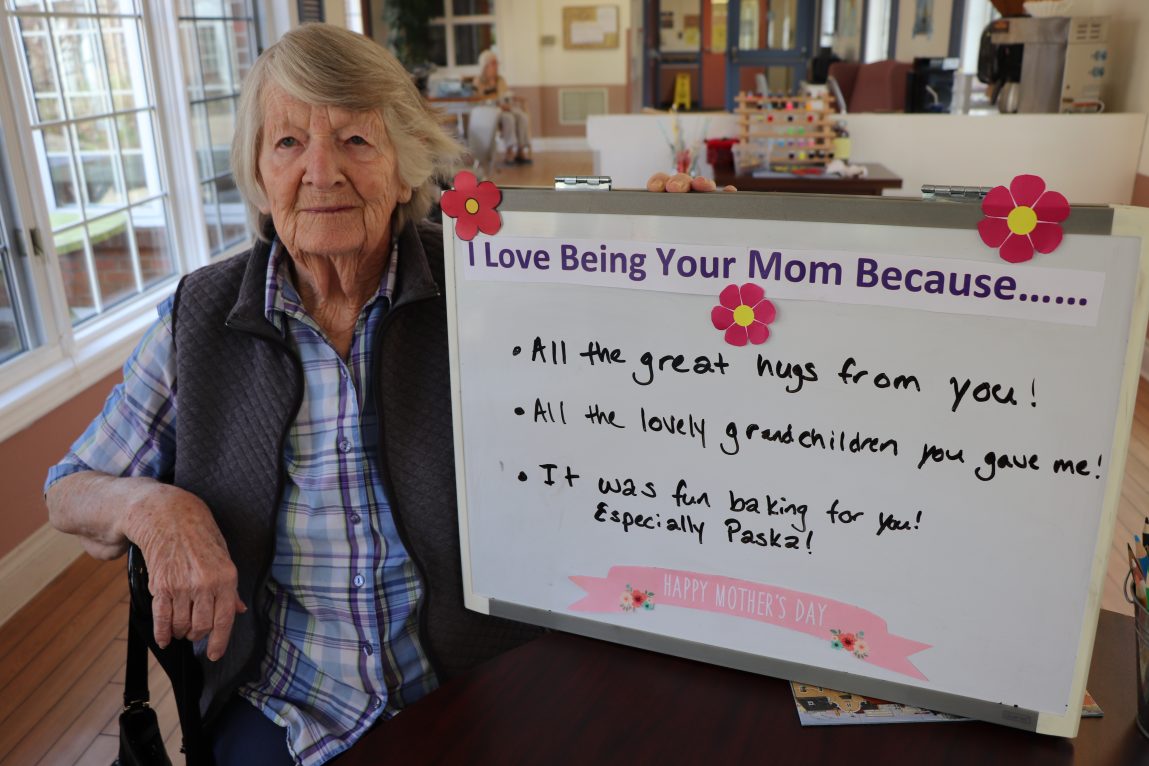 I Love Being Your Mom Because......
• All the great hugs from you!
• All the lovely grandchildren you gave me!
• It was fun baking for you!
Especially Paska!
HAPPY MOTHER'S DAY